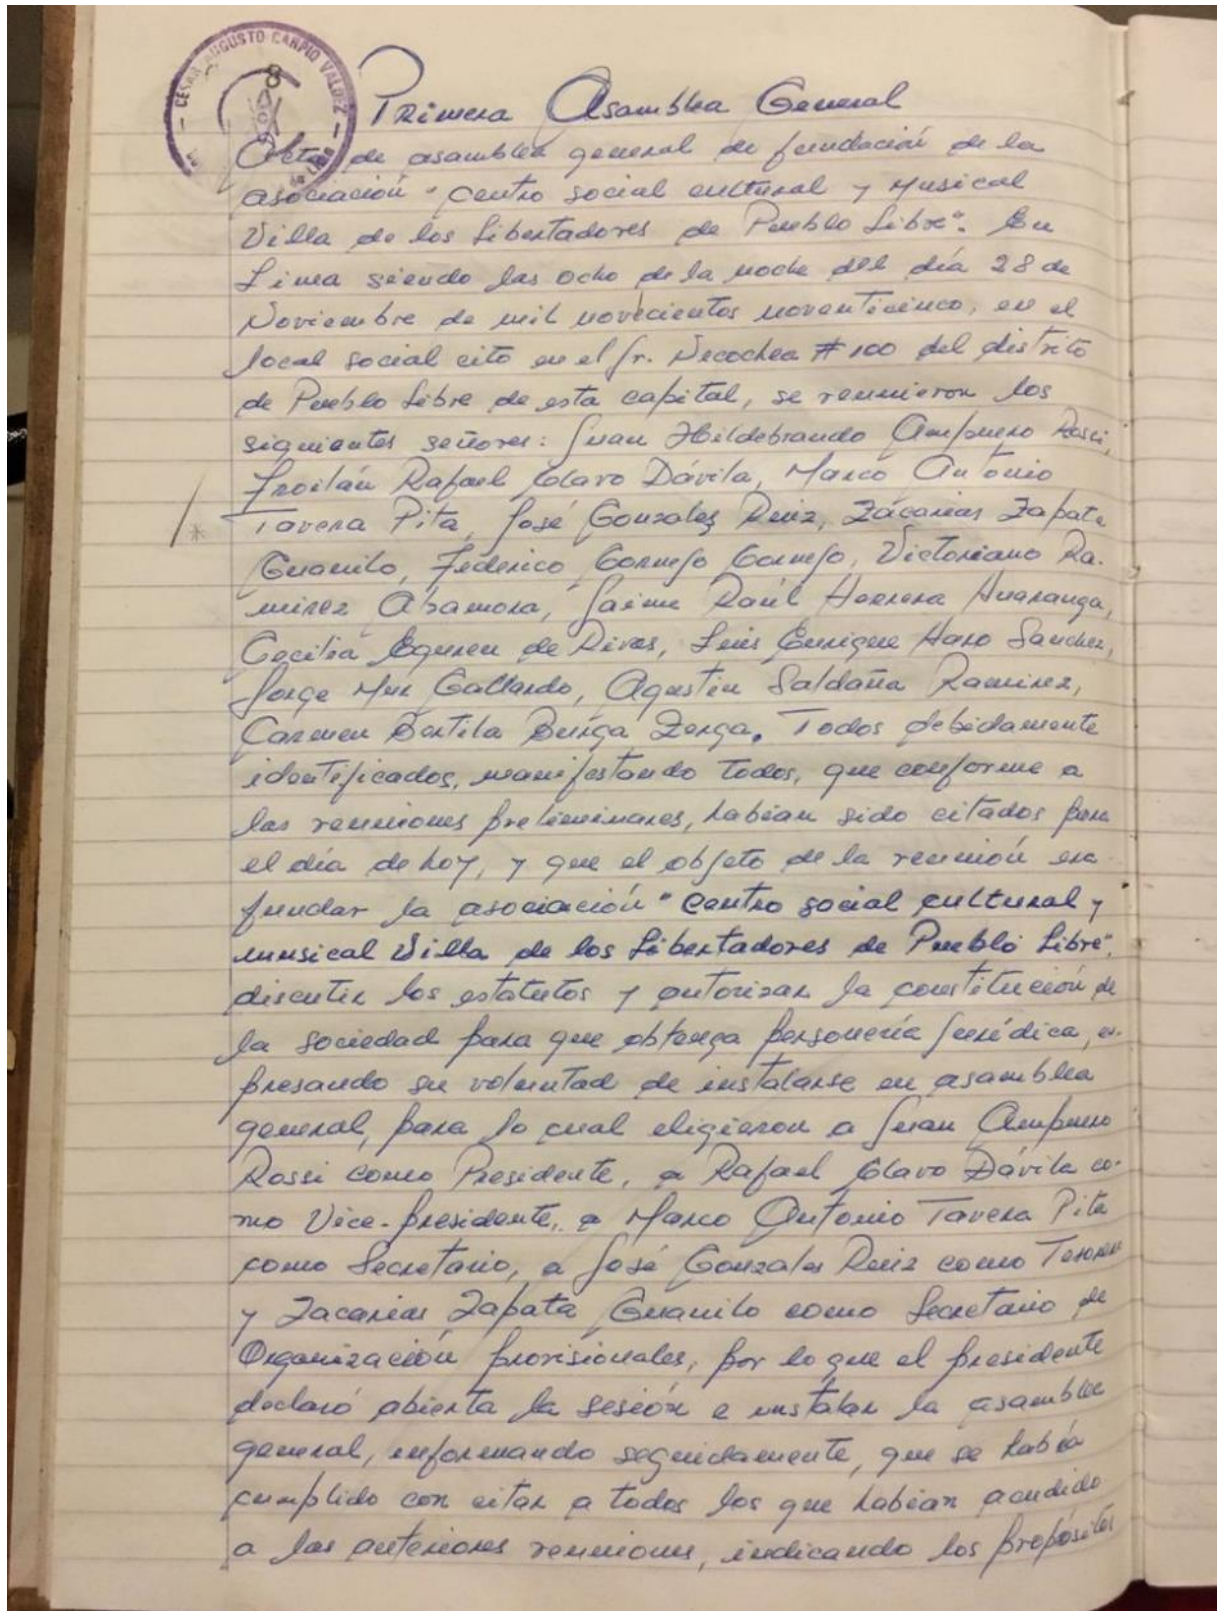 CESAR AUGUSTO CARPIO VALDEZ
8
Primera Asamblea General
Acta de asamblea general de fundación de la
asociación "Centro social cultural y Musical
Villa de los Libertadores de Pueblo Libre". En
Lima siendo las ocho de la noche del día 28 de
Noviembre de mil novecientos noventicinco, en el
local social cito en el Jr. Necochea # 100 del distrito
de Pueblo Libre de esta capital, se reunieron los
siguientes señores: Juan Hildebrando Ampuero Rossi,
Froilán Rafael Clavo Dávila, Marco Antonio
Tavera Pita, José Gonzales Ruiz, Zácarias Zapata
Guanilo, Federico Cornejo Cornejo, Victoriano Ra-
mirez Abamora, Jaime Raúl Herrera Huaranga,
Cecilia Eguren de Rivas, Luis Enrique Haro Sanchez,
Jorge Mur Gallardo, Agustin Saldaña Ramirez,
Carmen Bertila Burga Zerga. Todos debidamente
identificados, manifestando todos, que conforme a
las reuniones preliminares, habian sido citados para
el día de hoy, y que el objeto de la reunión era
fundar la asociación "Centro social cultural y
musical Villa de los Libertadores de Pueblo Libre",
discutir los estatutos y autorizar la constitución de
la sociedad para que obtenga personería jurídica, ex-
presando su voluntad de instalarse en asamblea
general, para lo cual eligieron a Juan Ampuero
Rossi como Presidente, a Rafael Clavo Dávila co-
mo Vice-presidente, a Marco Antonio Tavera Pita
como Secretario, a José Gonzales Ruiz como Tesorero
y Zacarias Zapata Guanilo como Secretario de
Organización provisionales, por lo que el presidente
declaró abierta la sesión e instalar la asamblea
general, informando seguidamente, que se había
cumplido con citar a todos los que habian acudido
a las anteriores reuniones, indicando los propósitos